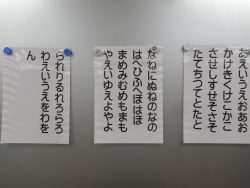 あえいうえおあお
かけきくけこかこ
させしすせそさそ
たてちつてとたと
なねにぬねのなの
はへひふへほはほ
まめみむめもまも
やえいゆえよやよ
られりるれろらろ
わえいうえをわを
ん